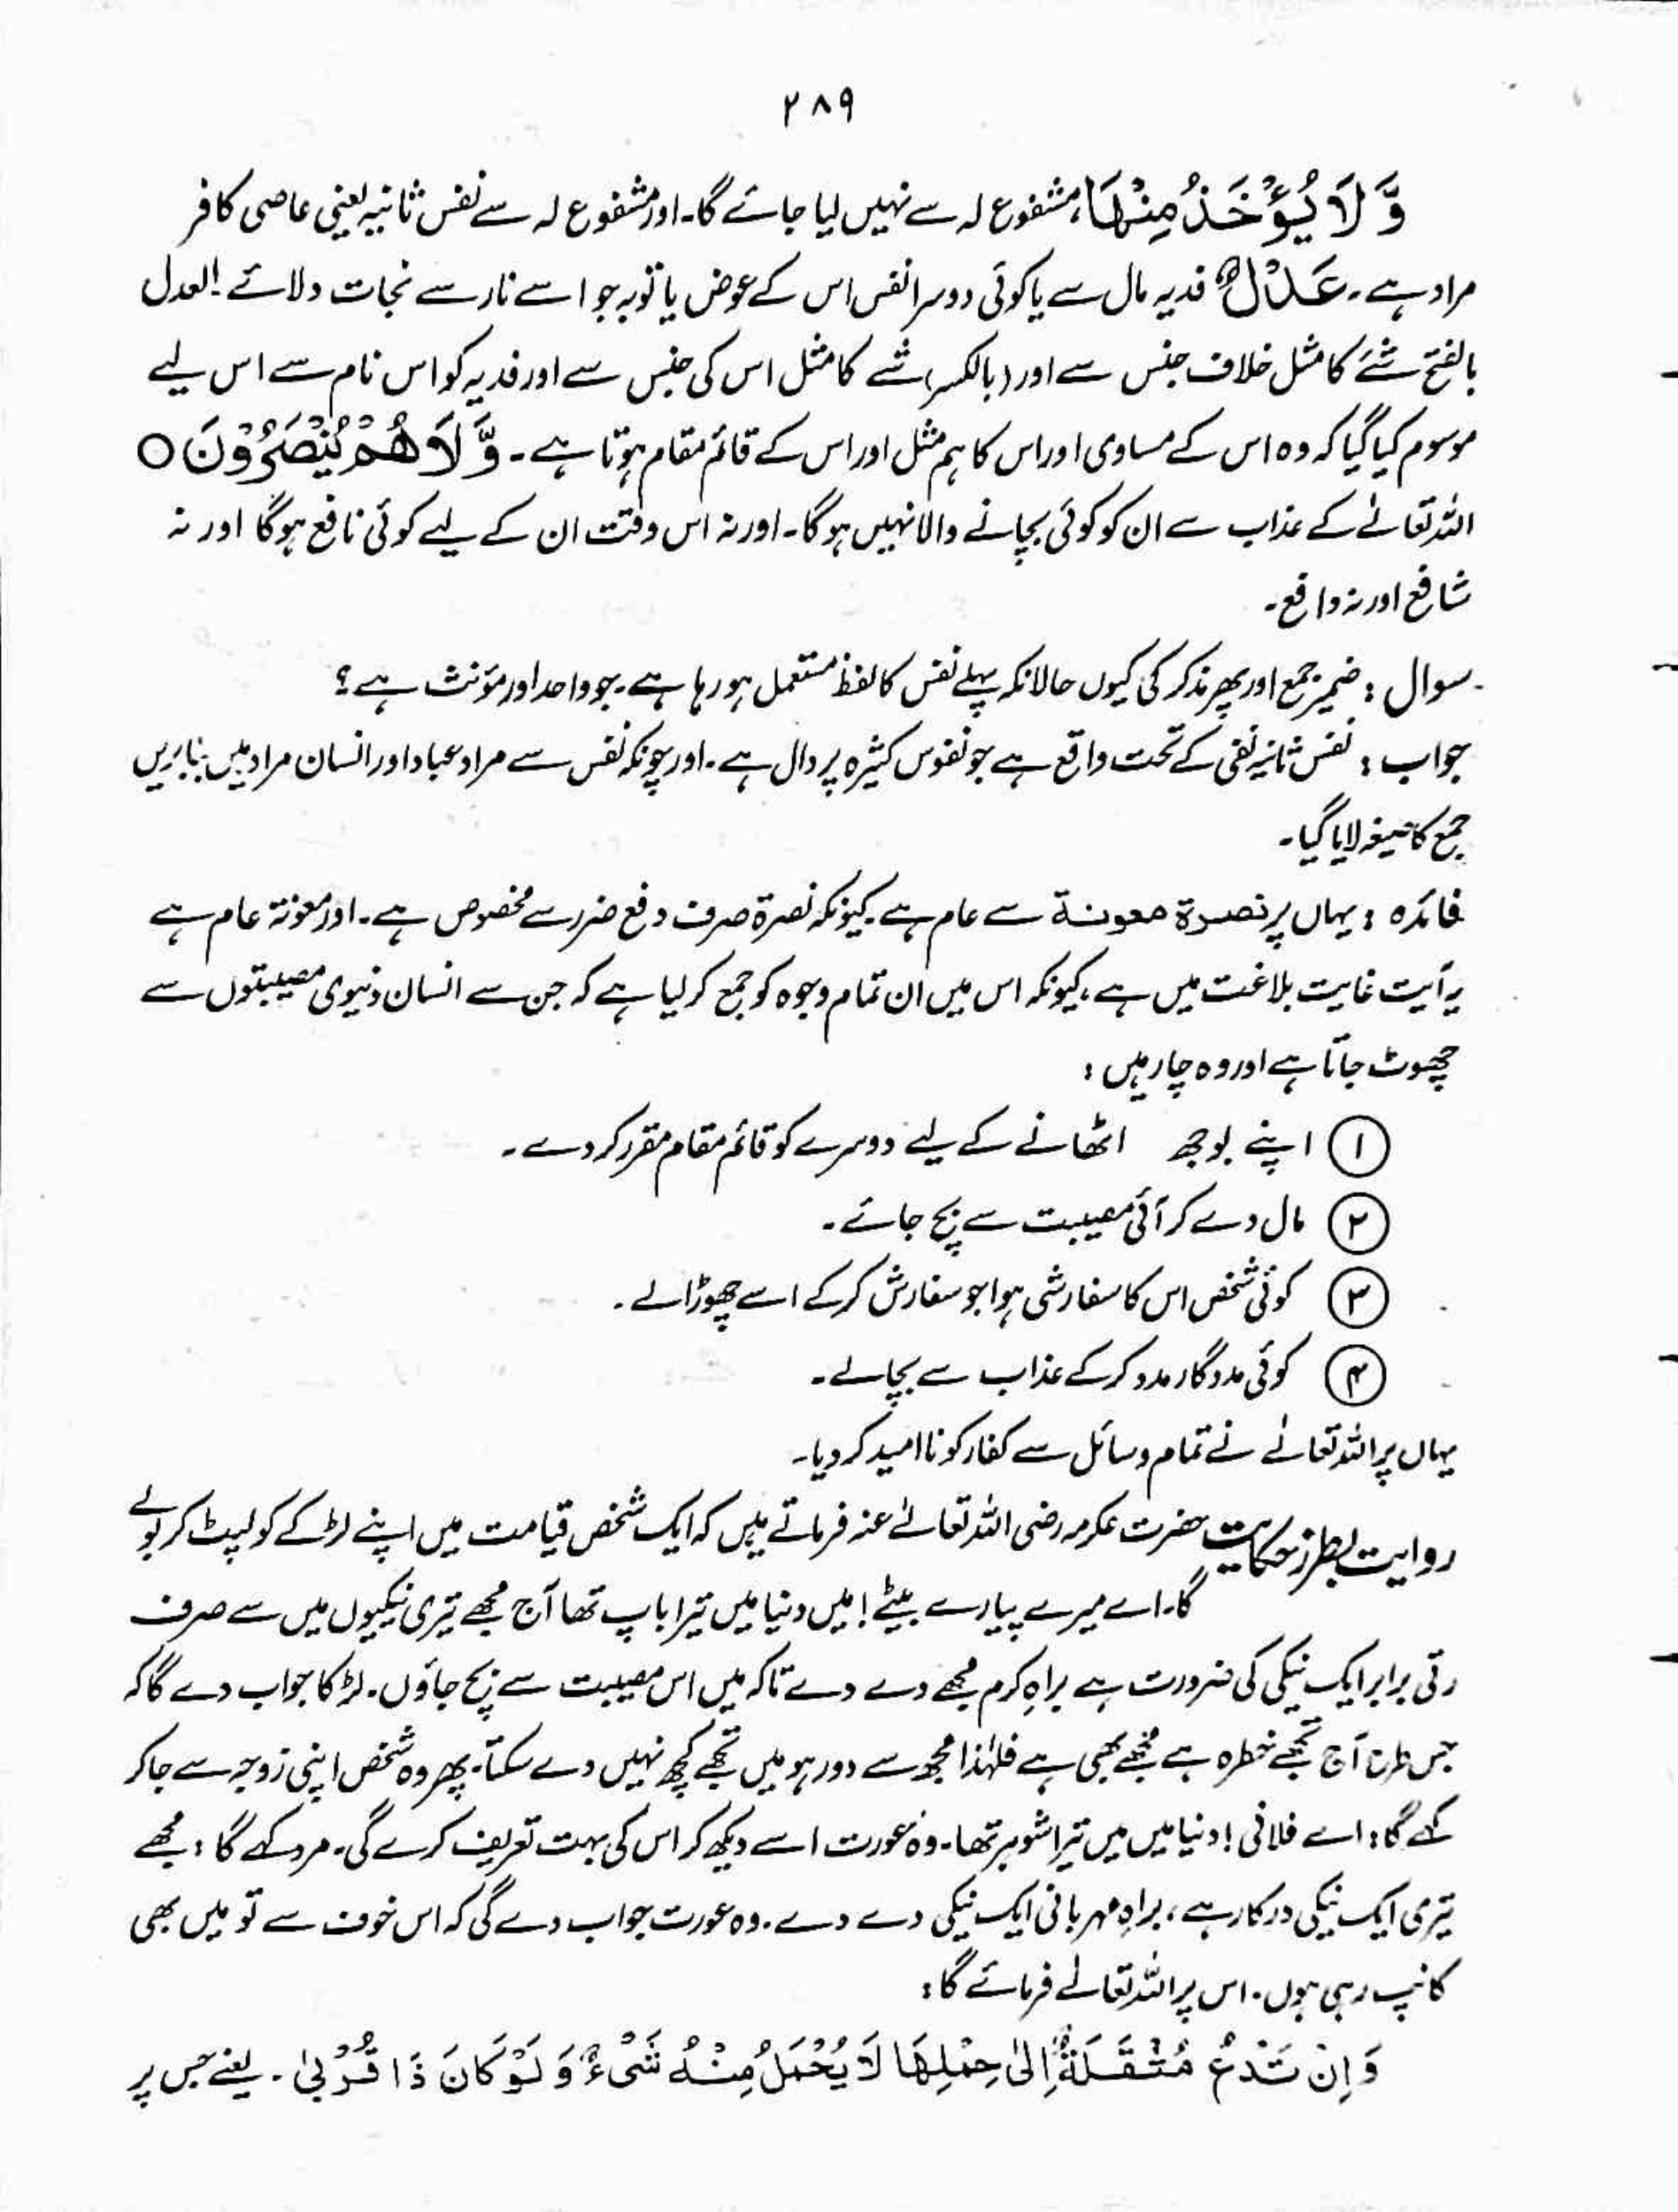 ۲۸۹
وَّلَا یُؤْخَذُ مِنْهَا، مشفوع لہ سے نہیں لیا جائے گا۔ اور مشفوع لہ سے نفس ثانیہ یعنی عاصی کافر
مراد ہے۔ عَدْلٌ فدیہ مال سے یا کوئی دوسرا نفس اس کے عوض یا توبہ جو اسے نار سے نجات دلائے! العدل
بالفتح شئے کا مثل خلاف جنس سے اور (بالکسر) شے کا مثل اس کی جنس سے اور فدیہ کو اس نام سے اس لیے
موسوم کیا گیا کہ وہ اس کے مساوی اور اس کا ہم مثل اور اس کے قائم مقام ہوتا ہے۔ وَّلَا هُمْ یُنْصَرُوْنَ ○
اللہ تعالےٰ کے عذاب سے ان کو کوئی بچانے والا نہیں ہو گا۔ اور نہ اس وقت ان کے لیے کوئی نافع ہوگا اور نہ
شافع اور نہ دافع۔
سوال : ضمیر جمع اور پھر مذکر کی کیوں حالانکہ پہلے نفس کا لفظ مستعمل ہو رہا ہے۔ جو واحد اور مؤنث ہے؟
جواب : نفس ثانیہ نفی کے تحت واقع ہے جو نفوس کثیرہ پر دال ہے۔ اور چونکہ نفس سے مراد عباد اور انسان مراد ہیں بنابریں
جمع کا صیغہ لایا گیا۔
فائدہ : یہاں پر نصرة معونة سے عام ہے۔ کیونکہ نصرۃ صرف دفع ضرر سے مخصوص ہے۔ اور معونۃ عام ہے
یہ آیت غایت بلاغت میں ہے، کیونکہ اس میں ان تمام وجوہ کو جمع کر لیا ہے کہ جن سے انسان دنیوی مصیبتوں سے
چھوٹ جاتا ہے اور وہ چار ہیں :
۱ اپنے بوجھ اٹھانے کے لیے دوسرے کو قائم مقام مقرر کر دے۔
۲ مال دے کر آئی مصیبت سے بچ جائے۔
۳ کوئی شخص اس کا سفارشی ہوا جو سفارش کر کے اسے چھوڑا لے۔
۴ کوئی مددگار مدد کر کے عذاب سے بچالے۔
یہاں پر اللہ تعالےٰ نے تمام وسائل سے کفار کو نا امید کر دیا۔
روایت بطرز حکایت حضرت عکرمہ رضی اللہ تعالےٰ عنہ فرماتے ہیں کہ ایک شخص قیامت میں اپنے لڑکے کو لپٹ کر بولے
گا۔ اے میرے پیارے بیٹے! میں دنیا میں تیرا باپ تھا آج مجھے تیری نیکیوں میں سے صرف
رتی برابر ایک نیکی کی ضرورت ہے براہِ کرم مجھے دے دے تاکہ میں اس مصیبت سے بچ جاؤں۔ لڑکا جواب دے گا کہ
جس طرح آج تجھے خطرہ ہے مجھے بھی ہے فلہٰذا مجھ سے دور ہو میں تجھے کچھ نہیں دے سکتا۔ پھر وہ شخص اپنی زوجہ سے جا کر
کہے گا : اے فلانی! دنیا میں میں تیرا شوہر تھا۔ وہ عورت اسے دیکھ کر اس کی بہت تعریف کرے گی۔ مرد کہے گا : مجھے
تیری ایک نیکی درکار ہے، براہِ مہربانی ایک نیکی دے دے۔ وہ عورت جواب دے گی کہ اس خوف سے تو میں بھی
کانپ رہی ہوں۔ اس پر اللہ تعالےٰ فرمائے گا :
وَ اِنْ تَدْعُ مُثْقَلَةٌ اِلٰى حِمْلِهَا لَا یُحْمَلُ مِنْهُ شَیْءٌ وَّ لَوْ كَانَ ذَا قُرْبٰى۔ یعنے جس پر